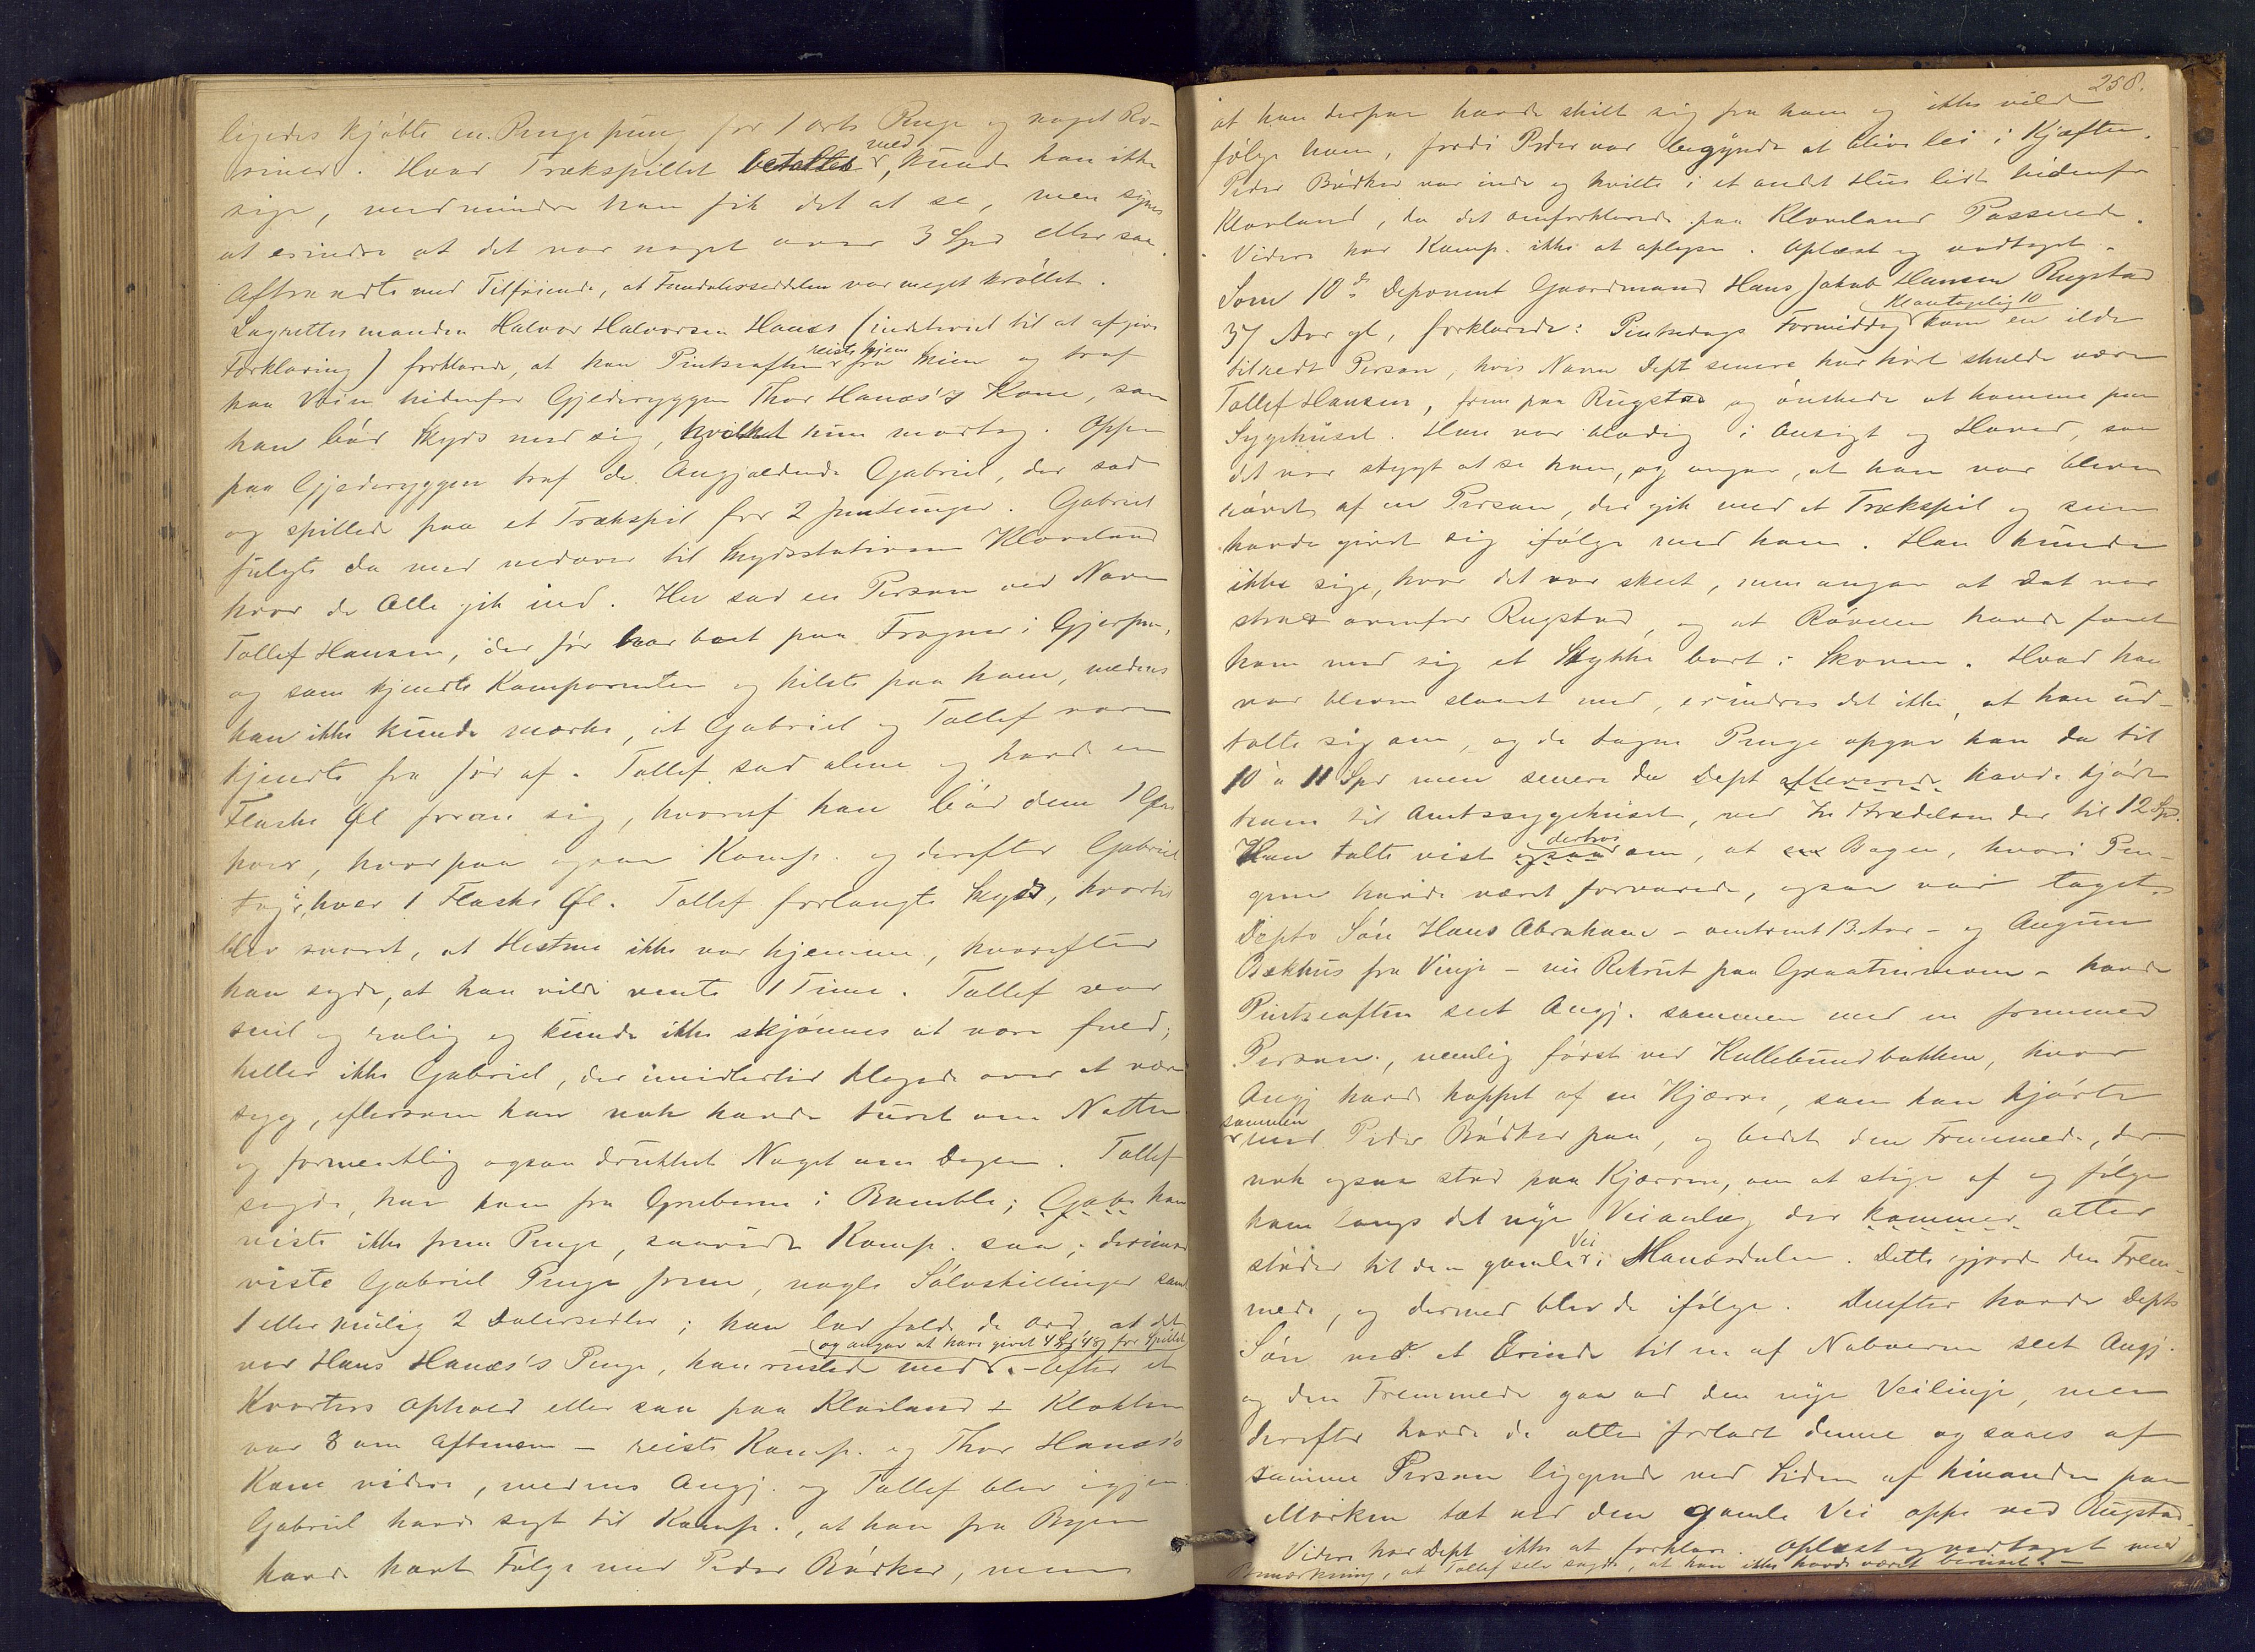 ligedes kjöbte en Pengepung for 1 orts Penge og noget Ro-
siner. Hvad Trækspillet betaltes med, kunde han ikke
sige, medmindre han fik det at se, men synes
at erindre at det var noget over 3 Spd eller saa.
Aftraadte med Tilföiende, at Femdalerseddelen var meget kröllet.
Lagrettesmanden Halvor Halvorsen Hanæs (indkaldt til at afgive
Forklaring) forklarede, at han Pintseaften reiste hjem fra Skien og traf
paa Veien nidenfor Gjederyggen Thor Hanæs's Kone, som
han böd Skyds med sig, hvilket hun modtog. Oppe
paa Gjederyggen traf de Angjældende Gabriel, der sad
og spillede paa et Trækspil for 2 Jentunger. Gabriel
fulgte da med nedover til Skydsstationen Kloveland
hvor de Alle gik ind. Her sad en Person ved Navn
Tollef Hansen, der før har boet paa Fragner i Gjerpen,
og som kjendte Komparenten og hilste paa ham, medens
han ikke kunde mærke, at Gabriel og Tollef vare
kjendte fra før af. Tollef sad alene og havde en
Flaske Øl foran sig, hvoraf han böd dem 1 Glas
hver, hvorpaa ogsaa Komp. og derefter Gabriel
tog hver 1 Flaske Øl. Tollef forlangte Skyds, hvortil
blev svaret, at Hestene ikke var hjemme, hvorefter
han sagde, at han vilde vente 1 Time. Tollef var
snil og rolig og kunde ikke skjönnes at være fuld;
heller ikke Gabriel, der imidlertid klagede over at være
syg, eftersom han nok havde turet om Natten
og formentlig ogsaa drukket Noget om Dagen. Tollef
sagde, han kom fra Gruberne i Bamble; Gabr han
viste ikke frem Penge, saavidt Komp. saa; derimod
viste Gabriel Penge frem, nogle Sölvskillinger samt
1 eller mulig 2 Dalersedler; han lod falde de Ord, at det
var Hans Hanæs's Penge, han ruslede med. (og angav at have givet 4 Spd 48 s for Spillet) - Efter et
Kvarters Ophold eller saa paa Kloveland - Klokken
var 8 om Aftenen - reiste Komp. og Thor Hanæs's
Kone videre, medens Angj. og Tollef blev igjen.
Gabriel havde sagt til Komp., at han fra Byen
havde havt Følge med Peder Bödker, men
258.
at han derpaa havde skilt sig fra ham og ikke vilde
følge ham, fordi Peder var begyndt at blive lei i Kjæften.
Peder Bödker var inde og hvilte i et andet Hus lidt nidenfor
Kloveland, da det omforklarede paa Kloveland Passerede.
Videre har Komp. ikke at oplyse. Oplæst og vedtaget.
Som 10de Deponent Gaardmand Hans Jakob Hansen Rugstad
37 Aar gl, forklarede: Pintsedags Formiddag (Kl antagelig 10) kom en ilde
tilredt Person, hvis Navn Dept senere har hört skulde være
Tollef Hansen, frem paa Rugstad og önskede at komme paa
Sygehuset. Han var blodig i Ansigt og Hoved, saa
det var stygt at se ham, og angav, at han var bleven
rövet af en Person, der gik med et Trækspil og som
havde givet sig ifölge med ham. Han kunde
ikke sige, hvor det var skeet, men angav at det var
strax ovenfor Rugstad, og at Röveren havde faaet
ham med sig et Stykke bort i Skoven. Hvad han
var bleven slaaet med, erindres det ikke, at han ud-
talte sig om, og de tagne Penge opgav han da til
10 à 11 Spd men senere da Dept efterneds havde kjört
ham til Amtssygehuset, ved Indtrædelsen der til 12 Spd.
Han talte vist ogsaa derhos om, at Bogen, hvori Pen-
gene havde været forvarede, ogsaa var taget.
Depts Sön Hans Abraham - omtrent 13 Aar - og Augun
Bækhus fra Vinje - nu Rekrut paa Graatenmoen - havde
Pintseaften seet Angj. sammen med en fremmed
Person, nemlig först ved Kullebundbakken, hvor
Angj havde hoppet af en Kjærre, som han kjörte
sammen med Peder Bödker paa, og bedet den Fremmede, der
nok ogsaa stod paa Kjærren, om at stige af og fölge
ham langs det nye Veianlæg der kommer atter
støder til den gamle Vei i Hanæsdalen. Dette gjorde den Frem-
mede, og dermed blev de ifölge. Derefter havde Depts
Sön ved et Erinde til en af Naboerne seet Angj.
og den Fremmede gaa ad den nye Veilinje, men
derefter havde de atter forladt denne og saaes af
samme Person liggende ved Siden af hinanden paa
Marken tæt ved den gamle Vei oppe ved Rugstad.
Videre har Dept ikke at forklare. Oplæst og vedtaget med
Bemærkning, at Tollef selv sagde, at han ikke havde været beruset. -